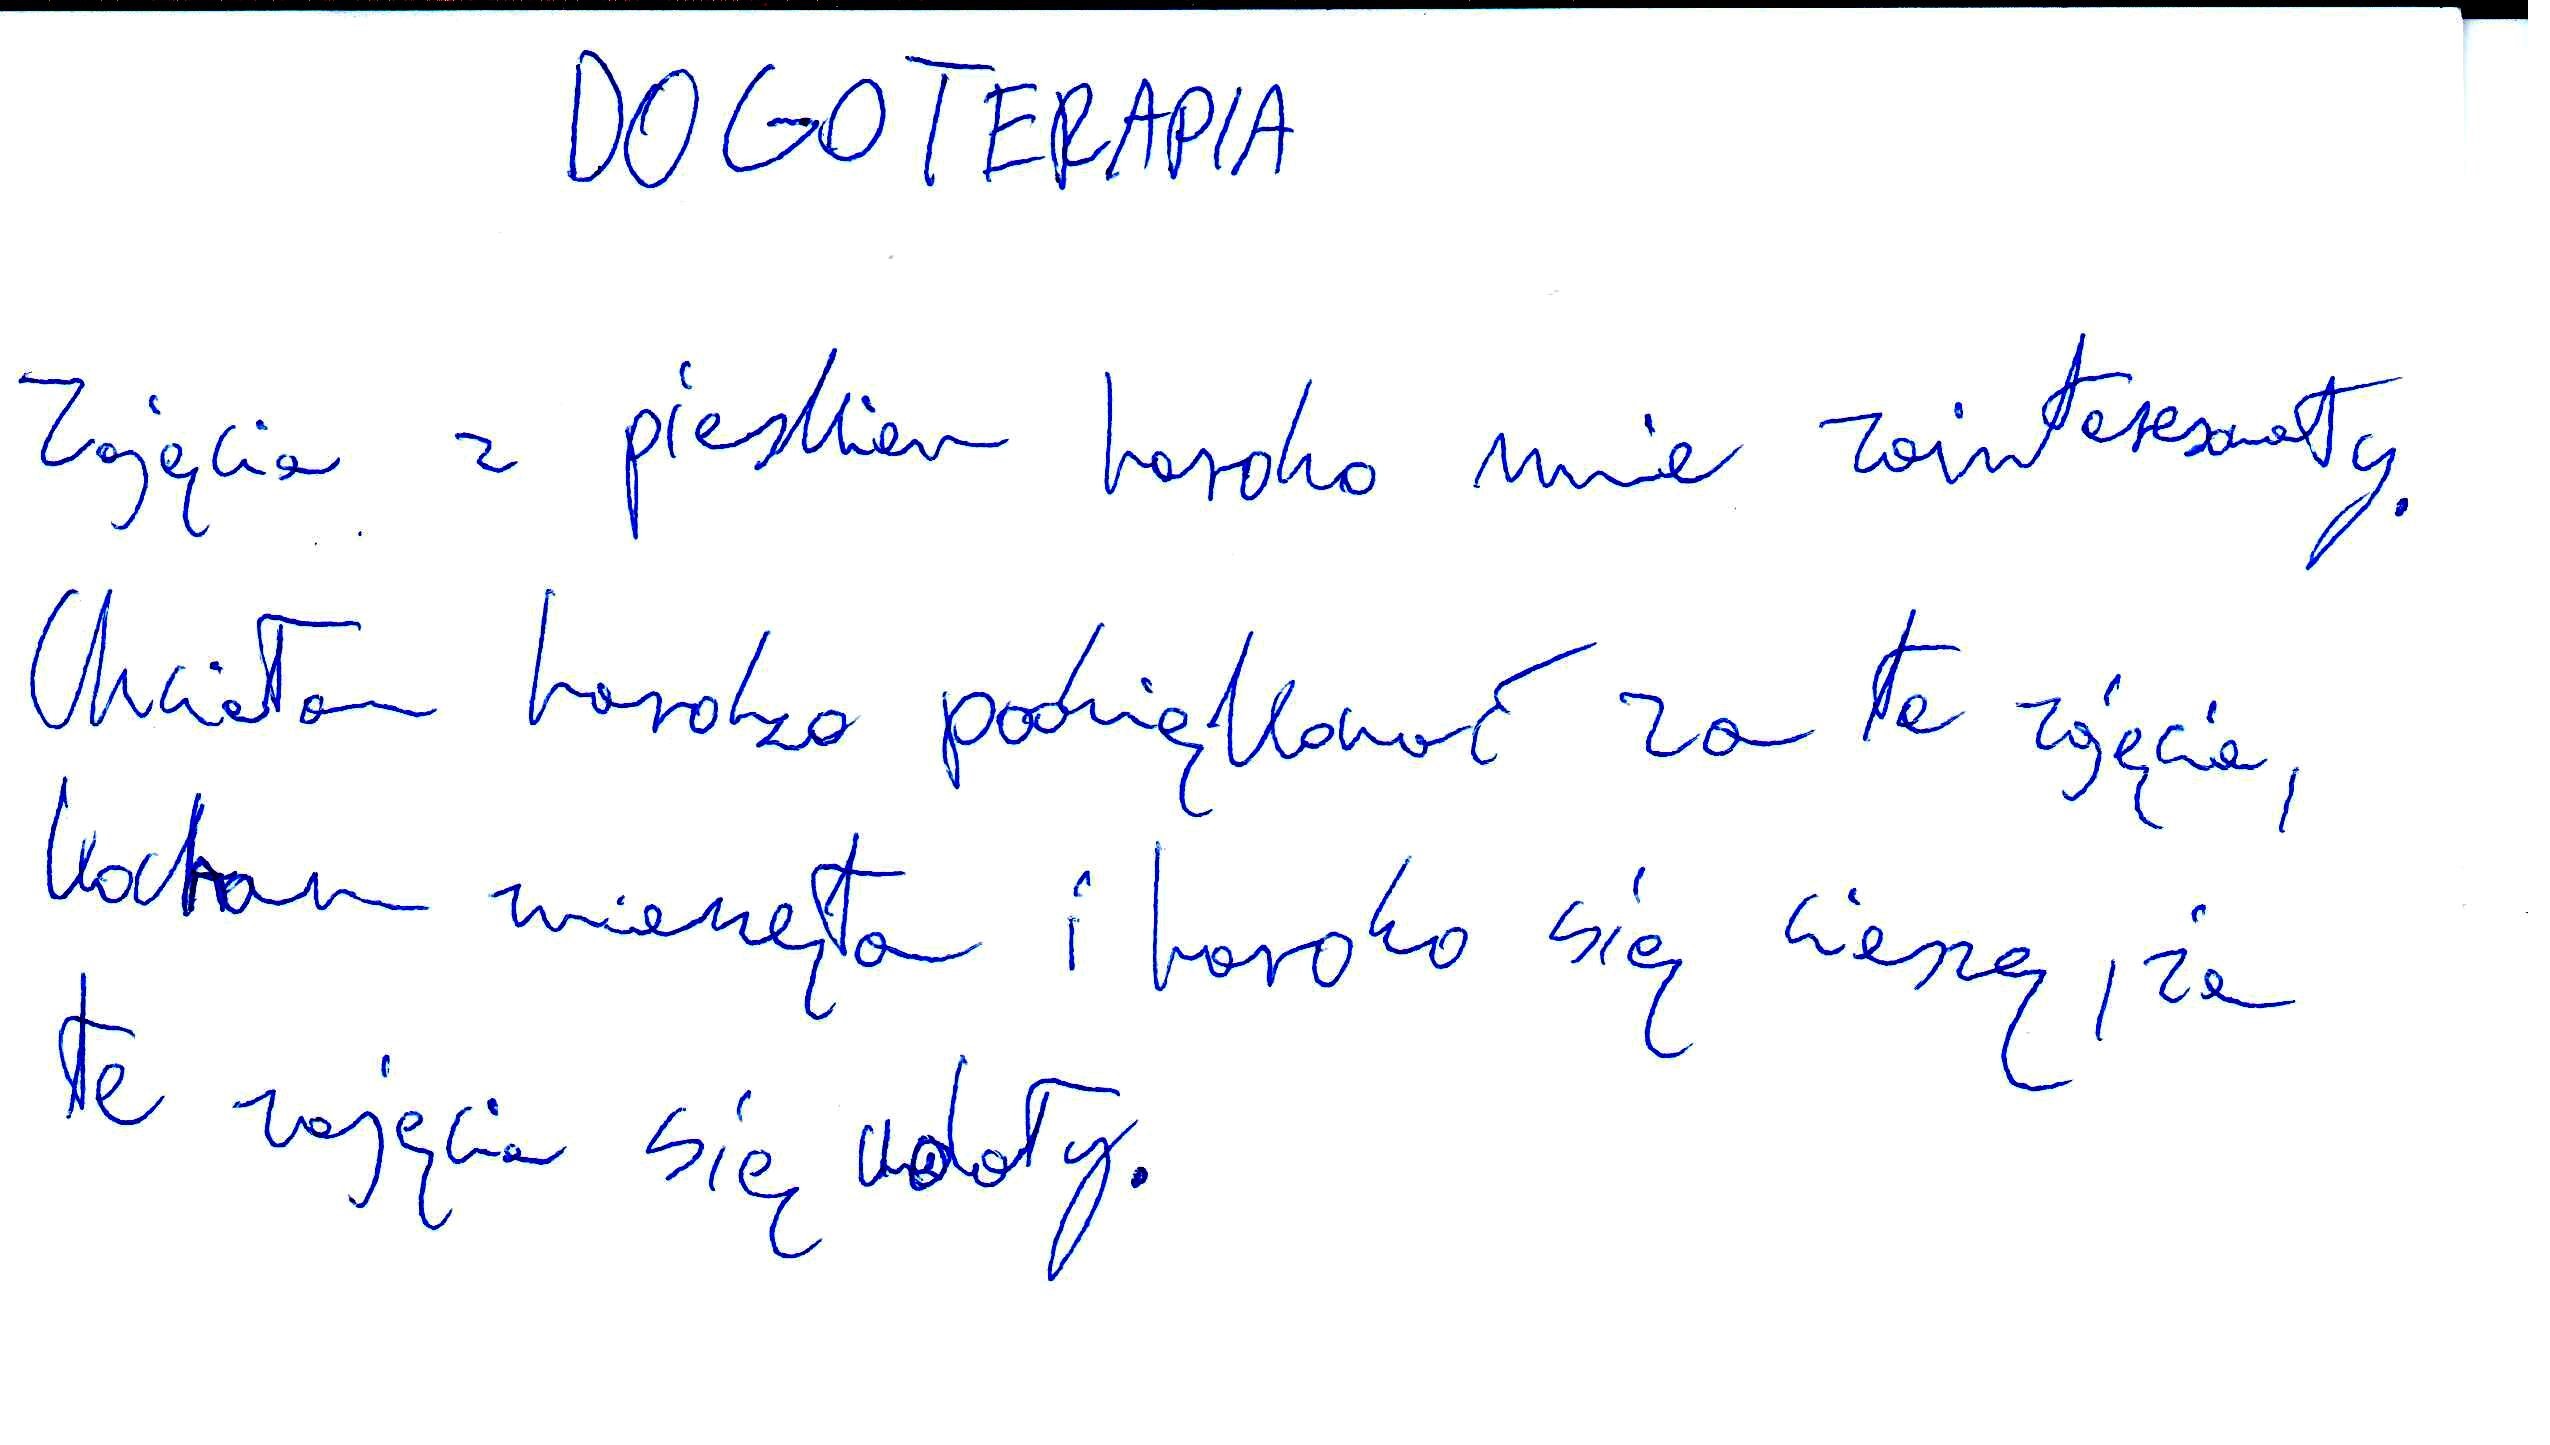 DOGOTERAPIA
Zajęcia z pieskiem bardzo mnie zainteresowały.
Chciałam bardzo podziękować za te zajęcia,
kocham zwierzęta i bardzo się cieszę, że
te zajęcia się udały.